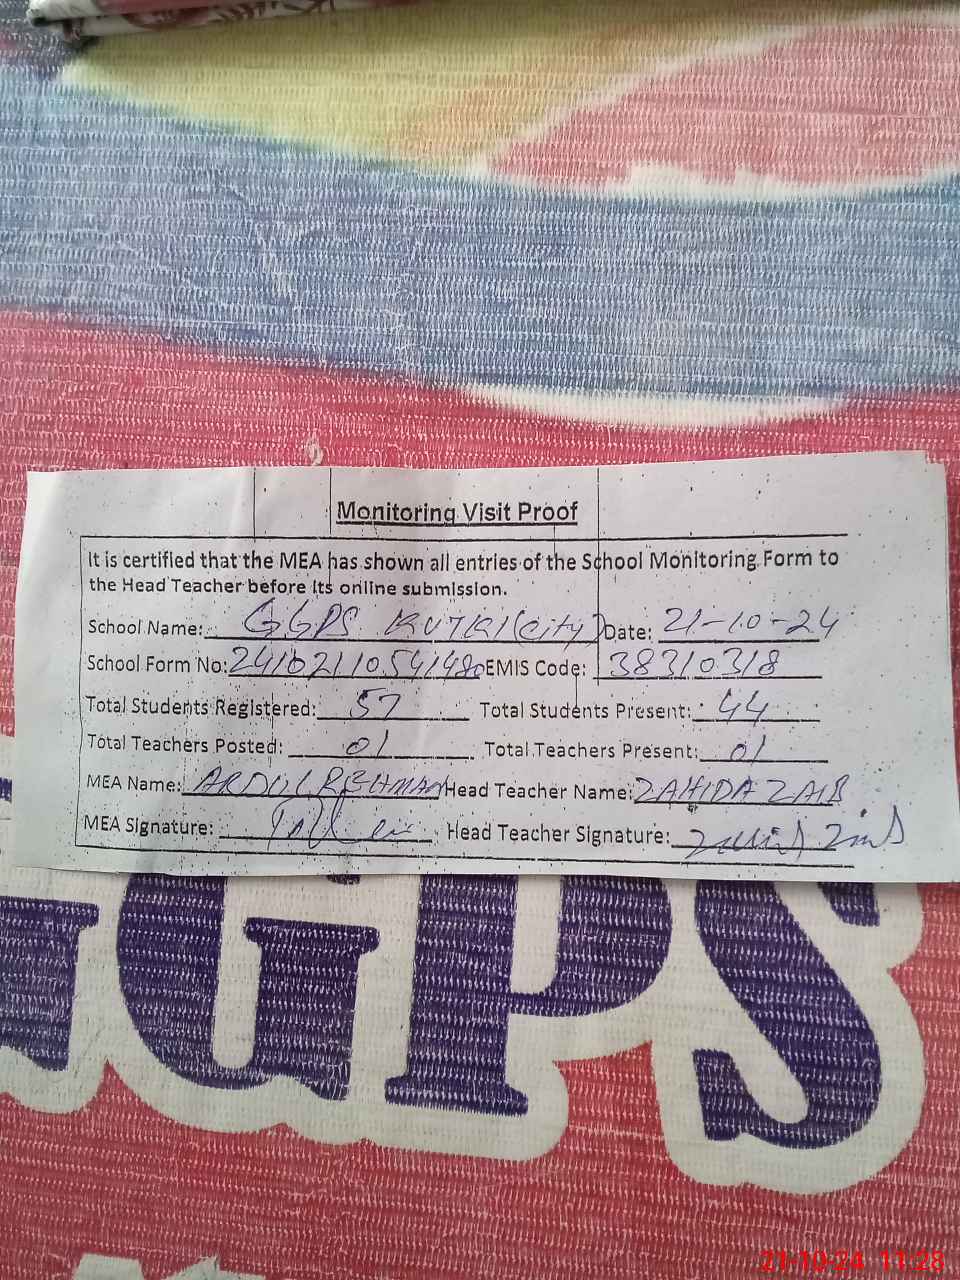 Monitoring Visit Proof
It is certified that the MEA has shown all entries of the School Monitoring Form to
the Head Teacher before its online submission.
School Name: GGPS KUTKI (City) Date: 21-10-24
School Form No: EMIS Code: 38310318
Total Students Registered: 57 Total Students Present: 44
Total Teachers Posted: 01 Total Teachers Present: 01
MEA Name: ABDUL REHMAN Head Teacher Name: ZAHIDA ZAIB
MEA Signature: Head Teacher Signature:
GGPS
21-10-24 11:28